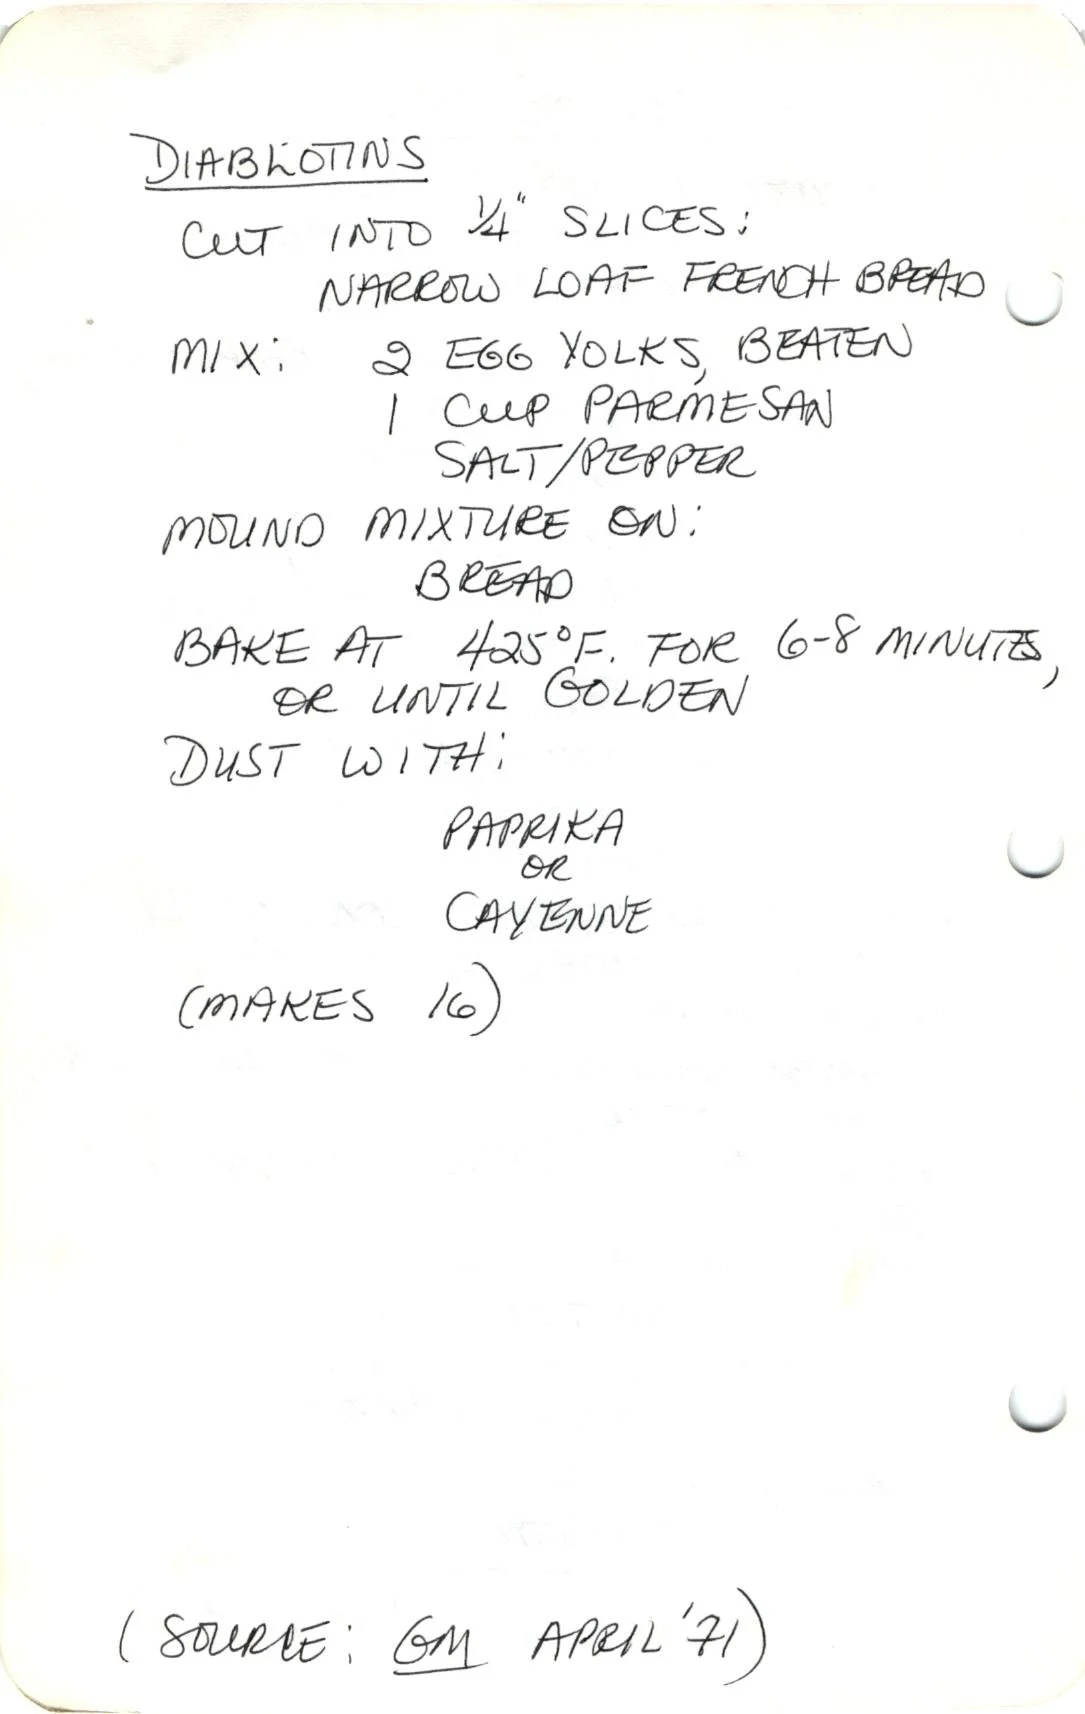 DIABLOTINS
CUT INTO 1/4" SLICES:
NARROW LOAF FRENCH BREAD
MIX: 2 EGG YOLKS, BEATEN
1 CUP PARMESAN
SALT/PEPPER
MOUND MIXTURE ON:
BREAD
BAKE AT 425°F. FOR 6-8 MINUTES,
OR UNTIL GOLDEN
DUST WITH:
PAPRIKA
OR
CAYENNE
(MAKES 16)
(SOURCE: GM APRIL '71)